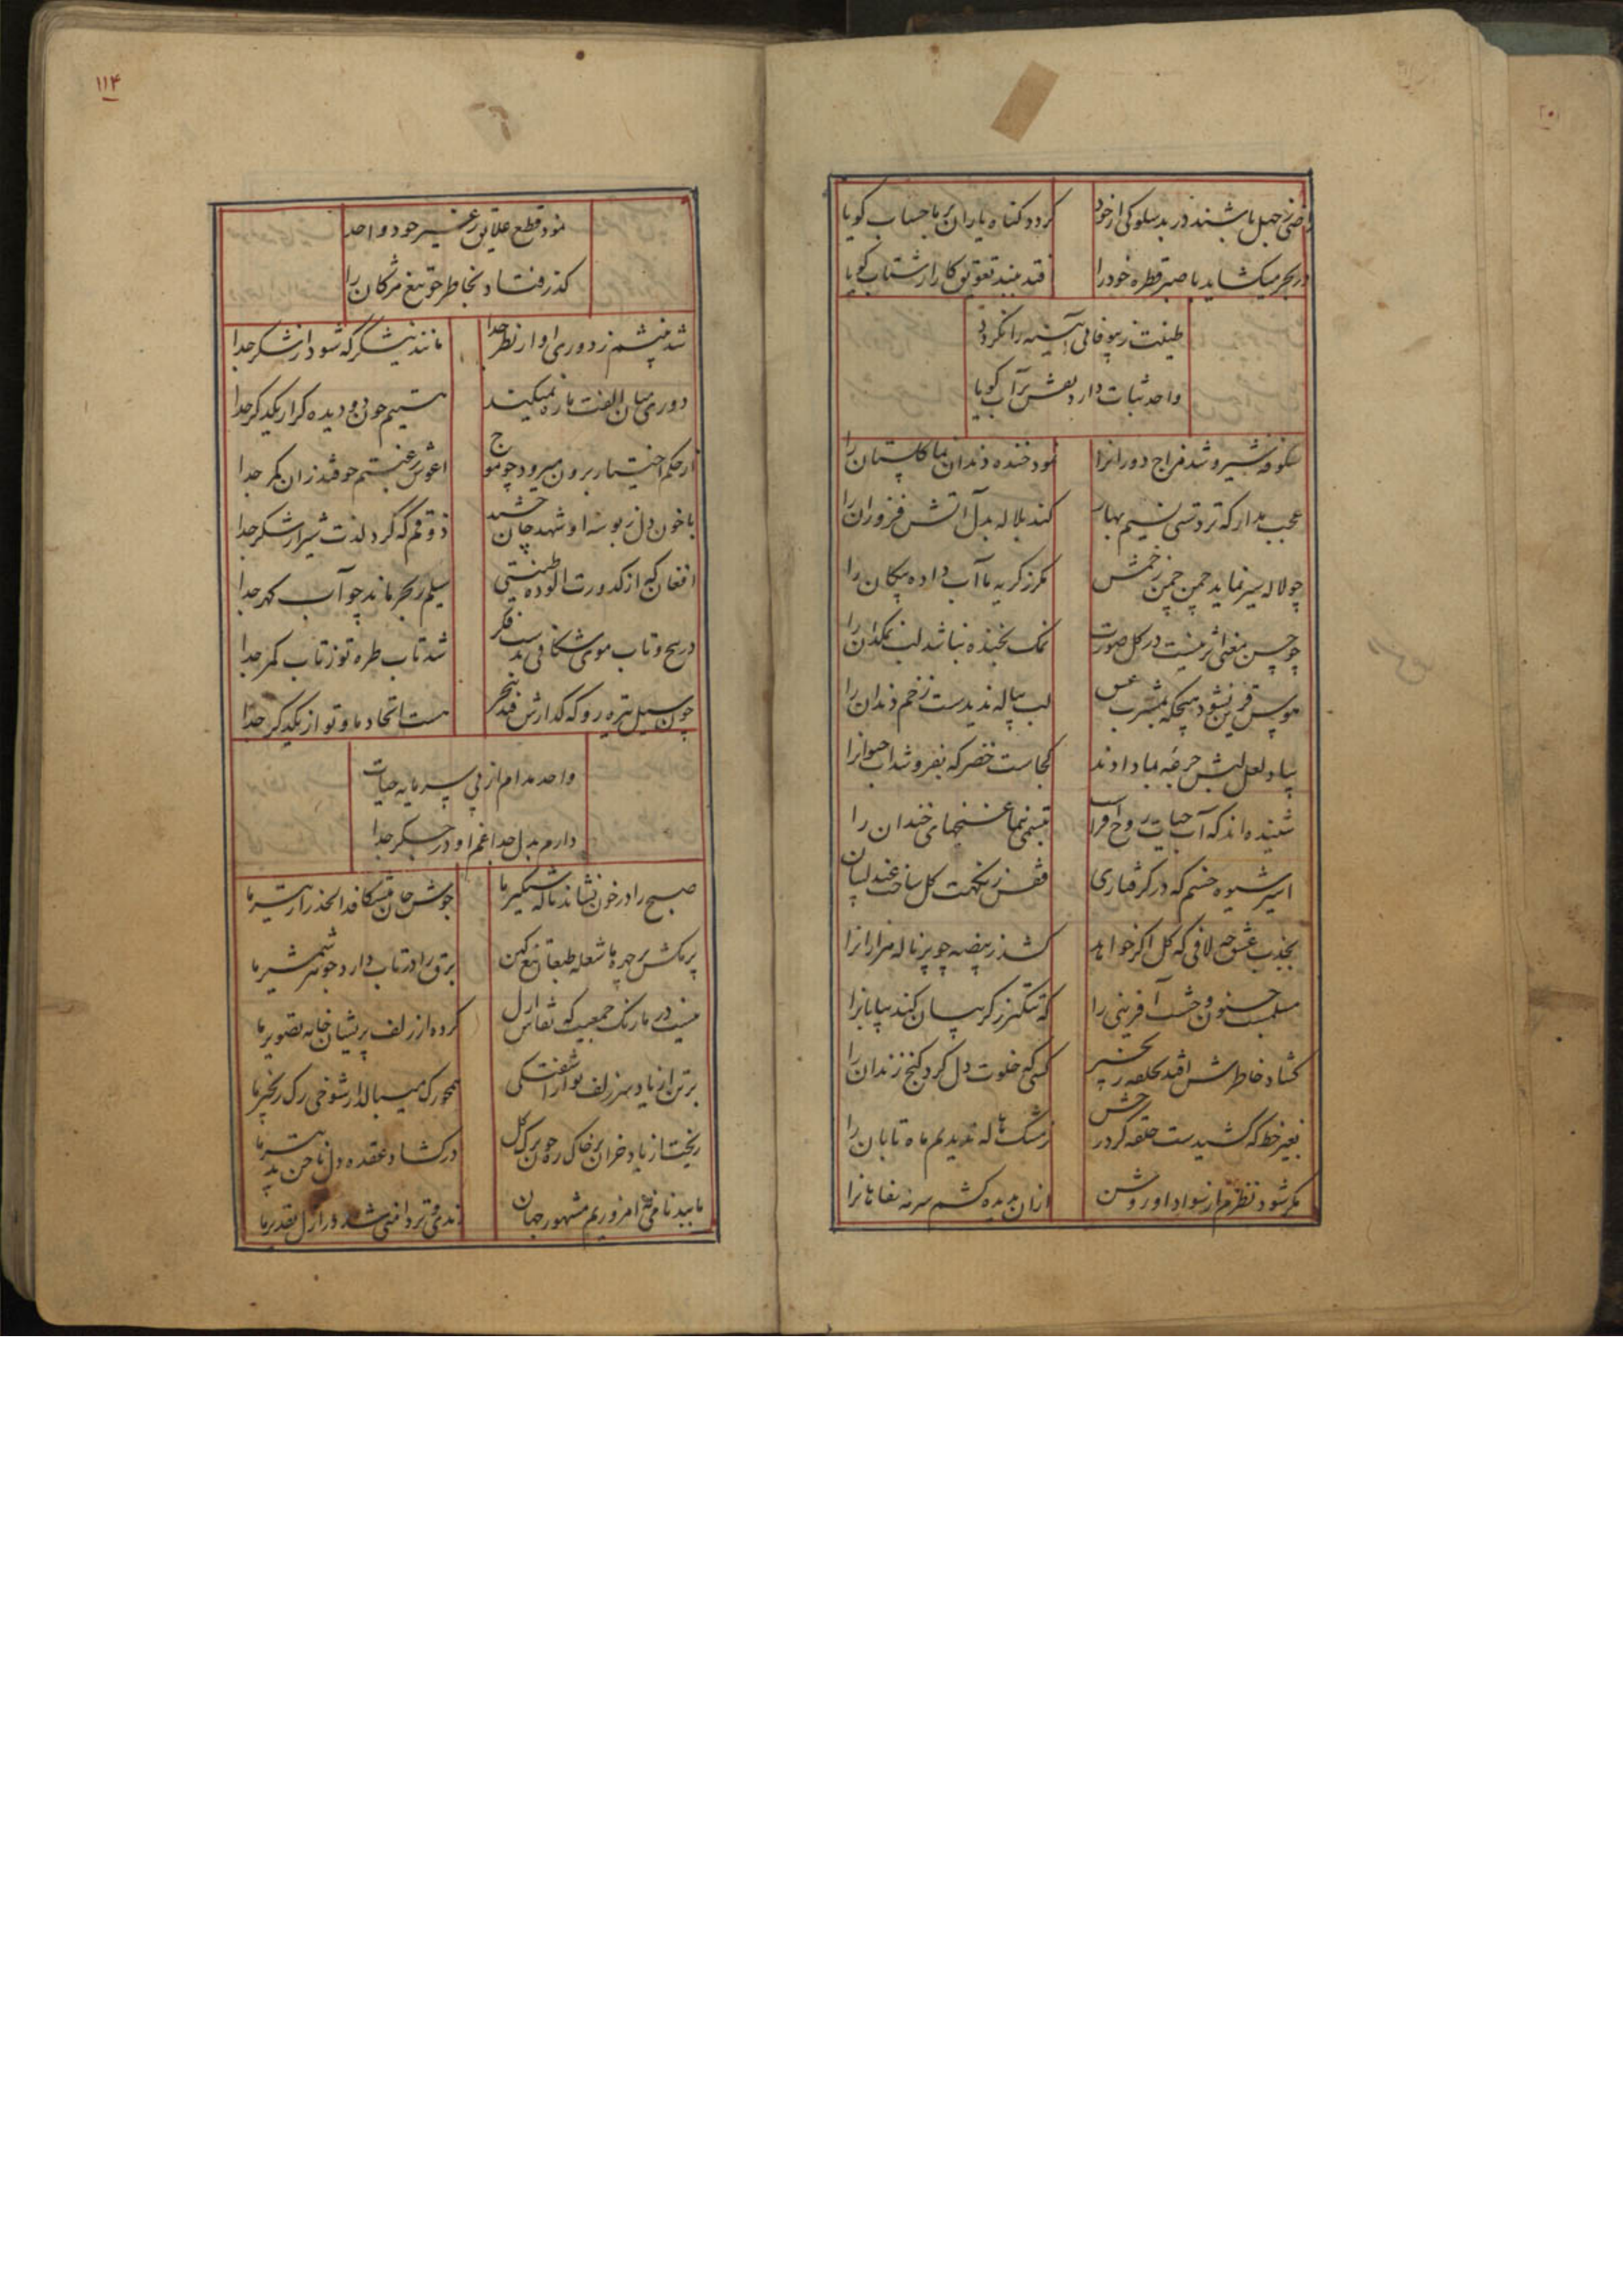 راضی ز جهل باشند در بد سلوکی از خود
گردد گناه یاران بر ما حساب گویا
در بحر میکشاید با صبر قطره خود را
افتد ببند تعویق کار از شتاب گویا
طینت ز بیوفائی آیینه را نگردد
واحد ثبات دارد نقش بر آب گویا
شکوفه شیر و شد مزاج دورانرا
نمود خنده دندان نما گلستان را
عجب مدار که تردستی نسیم بهار
کند بلاله بدل آتش فروزان را
چو لاله سیر نماید چمن چمن زخمش
مگر ز گریه ما آب داده پیکان را
چو حسن معنی اثر نیست در گل صورت
نمک بخنده نباشد لب نمکدان را
هوس قرین نشود هیچگه بمشرب
لب پیاله ندیدست زخم دندان را
بیاد لعل لبش جرعه بما دادند
کجاست خضر که بفروشد آب حیوانرا
شنیده اند که آب حیات روح افزا
تبسمی نما غنچهای خندان را
اسیر شیوه خشم که در گرفتاری
قفس ز نکهت گل ساخت عندلیبان
بجذب عشق چه لافی که گل اگر خواهد
کشد ز بیضه چو پر ناله هزارانرا
مسلمست جنون وحشت آفرینی را
که تنگتر ز گریبان کند بیابانرا
گشاد خاطرش افتد بحلقه زنجیر
کسی که خلوت دل کرد کنج زندان را
بغیر خط که کشیدست حلقه گرد رخش
ز مشک هاله ندیدیم ماه تابان را
مگر شود نظرم از سواد او روشن
ازان بدیده کشم سرمه صفاهانرا
۱۱۴
نمود قطع علایق ز غیر خود واحد
گذر فتاد بخاطر چو تیغ مژگان را
شد چشم ز دوری او از نظر جدا
مانند نیشکر که شود از شکر جدا
دوری میان الفت ما ره نمیکند
هستیم چون دو دیده گر از یکدگر جدا
از حکم اختیار برون میرود چو موج
آغوش رغبتم چو فتد زان کمر جدا
با خون دل ز بوسه او شهد جان چشد
ذوقم که کرد لذت شیر از شکر جدا
افغان که از کدورت آلوده طینتی
سیلم ز بحر ماند چو آب گهر جدا
در پیچ و تاب موی شکافی بدست فکر
شد تاب طره تو ز تاب کمر جدا
چون سیل تیره رو که گذارش فتد ببحر
هست اتحاد ما و تو از یکدگر جدا
واحد مدام از پی سرمایه حیات
دارم بدل جدا غم او در جگر جدا
صبح را در خون نشاند ناله شبگیر ما
جوشن جان میشکافد الحذر از تیر ما
پر مکش بر چهره ما شعله طبعان تیغ کین
برق را در تاب دارد جوهر شمشیر ما
نیست در ما رنگ جمعیت که نقاش ازل
کرده از زلف پریشان خامه تصویر ما
همچو رگ میبالد از شوخی رگ زنجیر ما
ریخت از باد خزان بر خاک ره چون برگ گل
در گشاد عقده دل ناخن تدبیر ما